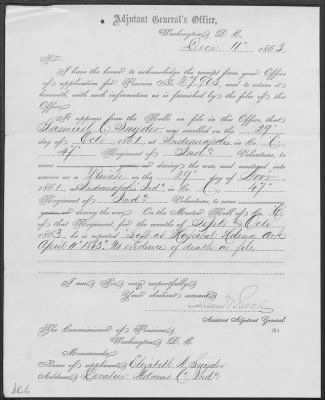 Adjutant General's Office,
Washington, D. C.
Decr 11" 1863.
Sir:
I have the honor to acknowledge the receipt from your Office
of application for Pension No. 27,903, and to return it
herewith, with such information as is furnished by the files of this
Office.
It appears from the Rolls on file in this Office, that
Samuel C. Snyder was enrolled on the 29"
day of Oct, 1861, at Indianapolis in Co. C,
47" Regiment of Ind Volunteers, to
serve during the war, and mustered into
service as a Private on the 29" day of Novr,
1861, at Indianapolis Ind, in Co. C, 47"
Regiment of Ind Volunteers, to serve
during the war. On the Muster Roll of Co. C
of that Regiment, for the months of Sept & Oct,
1863, he is reported at Hospital Helena Ark
April 11" 1863. No evidence of death on file
I am, Sir, very respectfully,
Your obedient servant,
Assistant Adjutant General.
The Commissioner of Pensions,
Washington, D. C.
Memoranda:
Name of applicant, Elizabeth A. Snyder
Address, Decatur Adams Co Ind